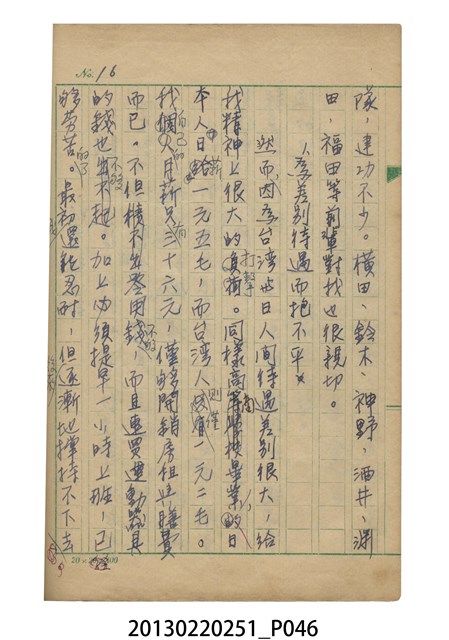 No. 16
隊，建功不少。橫田、鈴木、神野、酒井、淵
田、福田等前輩對我也很親切。
為差別待遇而抱不平
然而，因為台湾甘日人间待遇差別很大，給
我精神上很大的打擊。同樣高等學校畢業的日
本人日給一元五毛，而台湾人則僅一元二毛。
我個人月薪只有三十六元，僅够開銷房租這膳費
而已。不但積不出零用錢，而且連買運動器具
的錢也不够。加上必須提早一小時上班，已
够劳苦的了。最初還能忍耐，但逐漸地撐持不下去
20130220251_P046